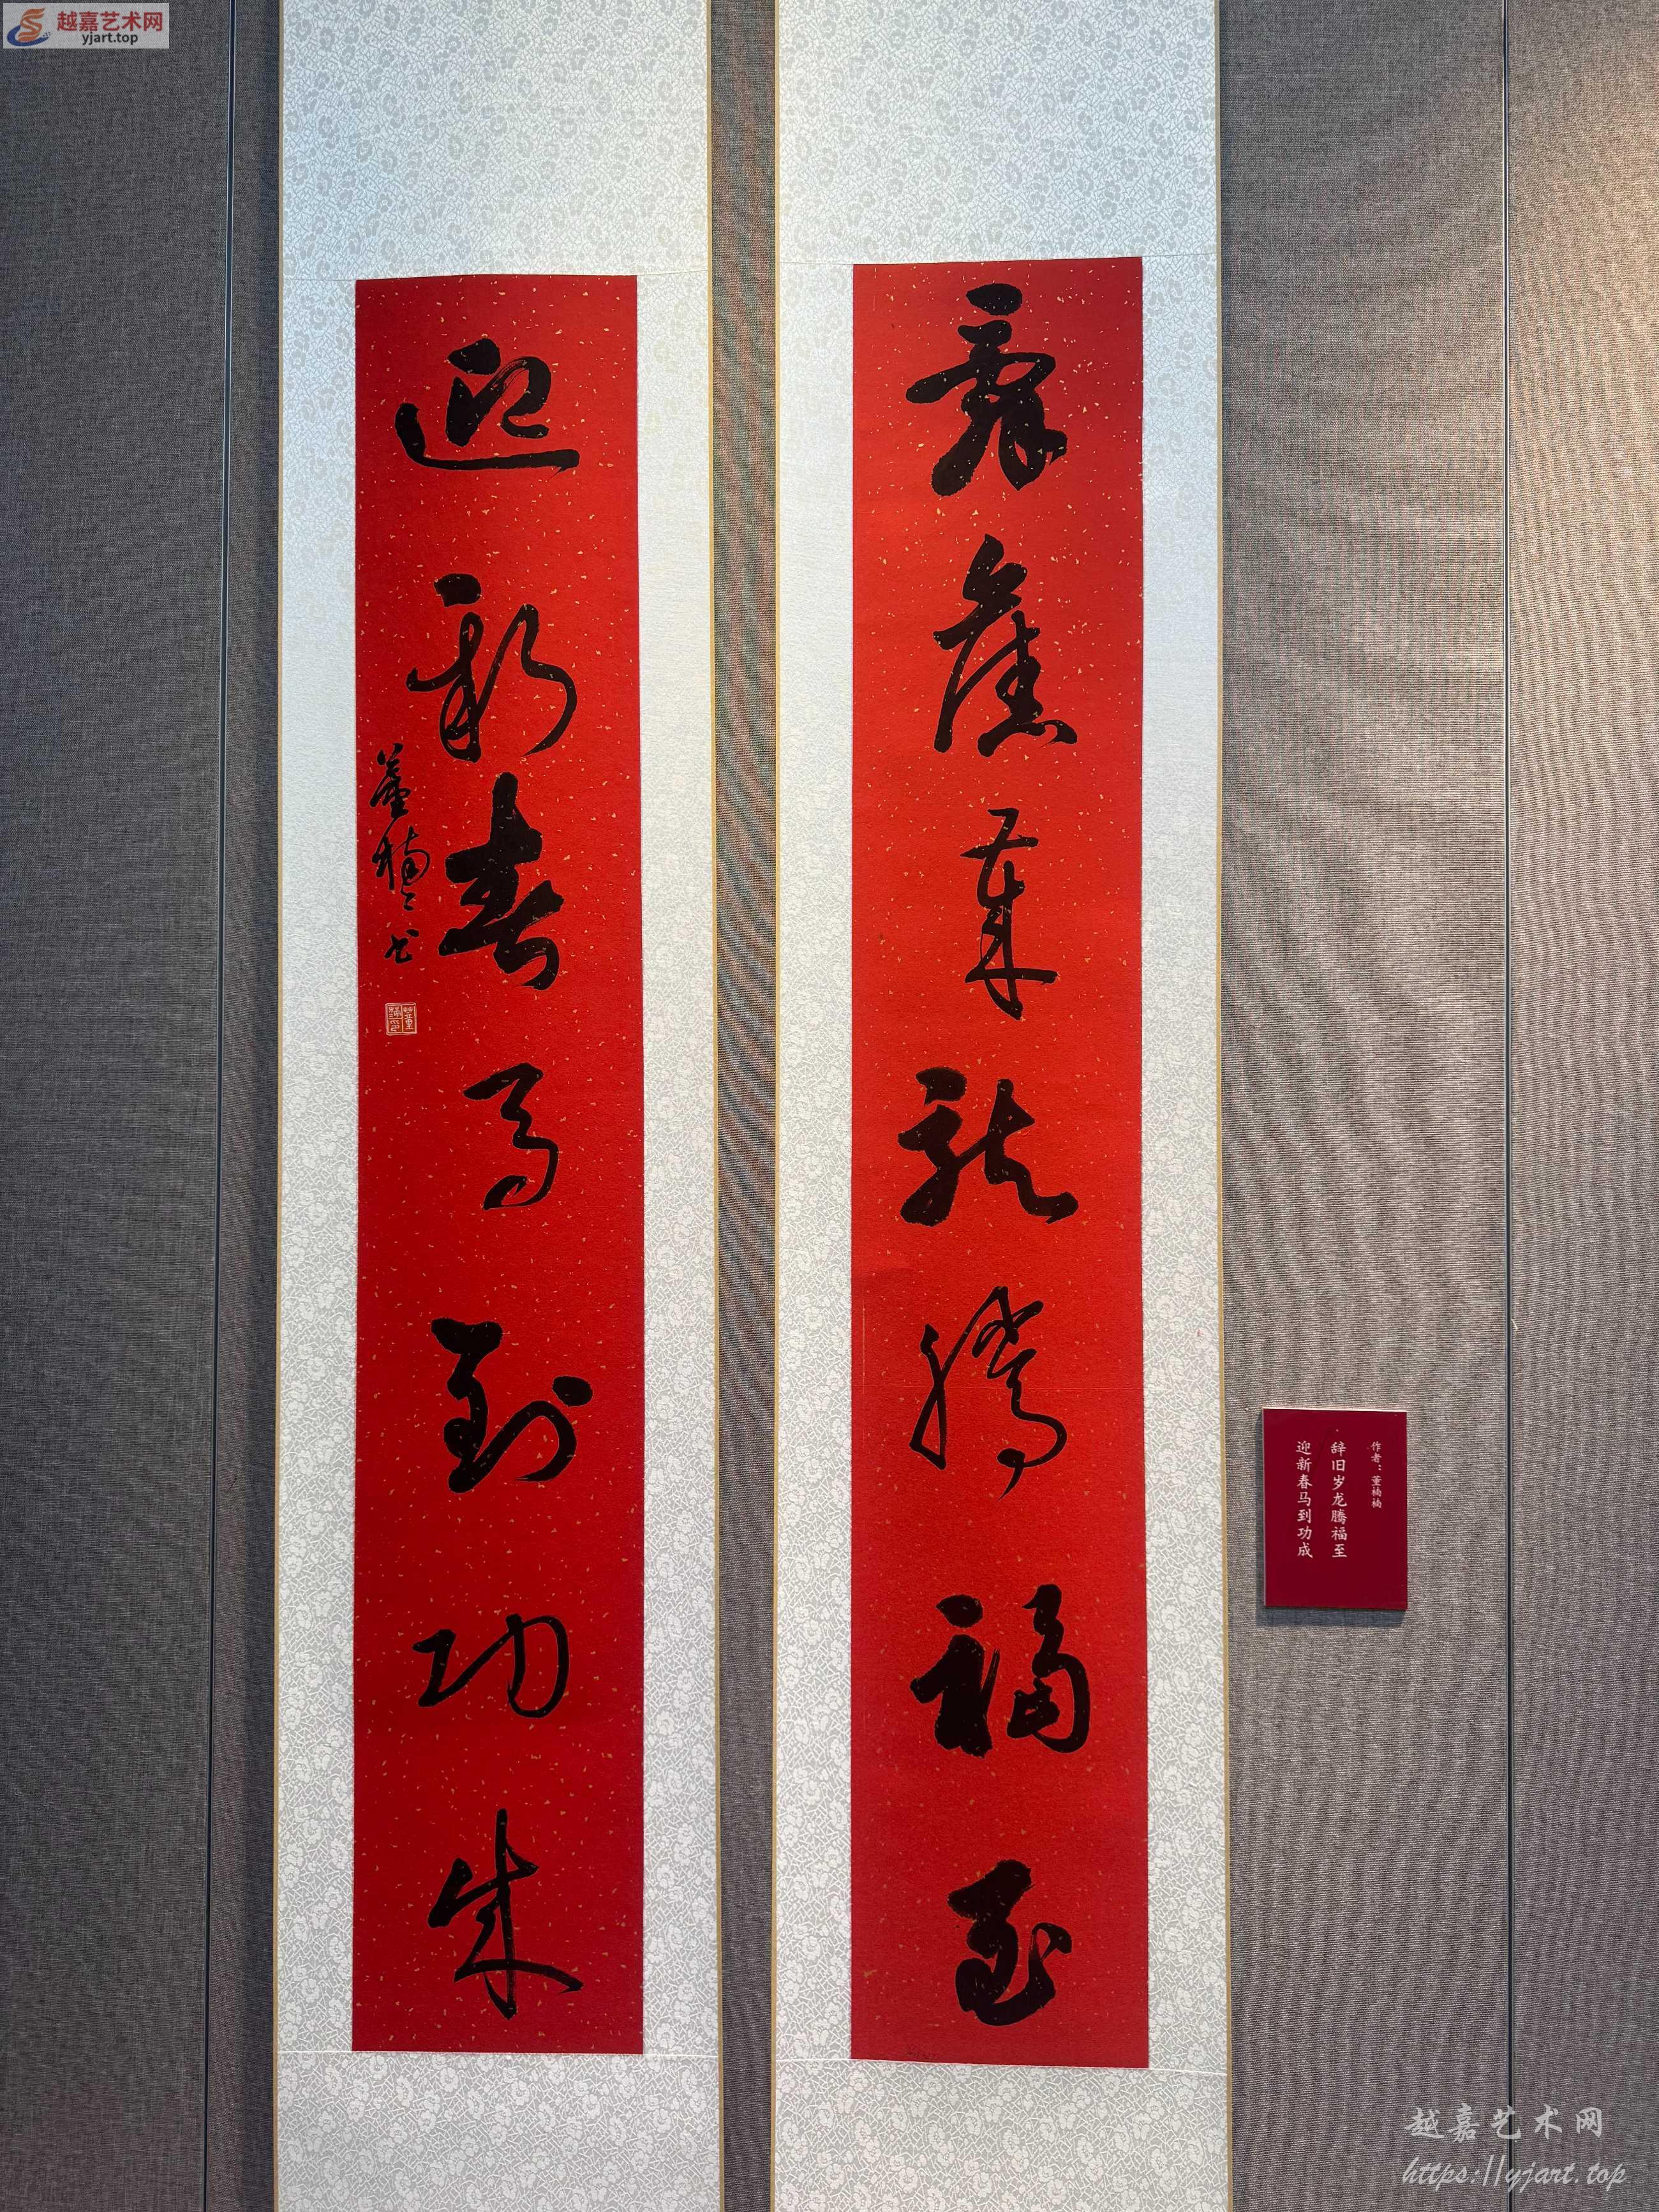 越嘉艺术网
yjart.top
辞舊歲龍騰福至
迎新春馬到功成
董楠楠书
作者：董楠楠
辞旧岁龙腾福至
迎新春马到功成
越嘉艺术网
https://yjart.top